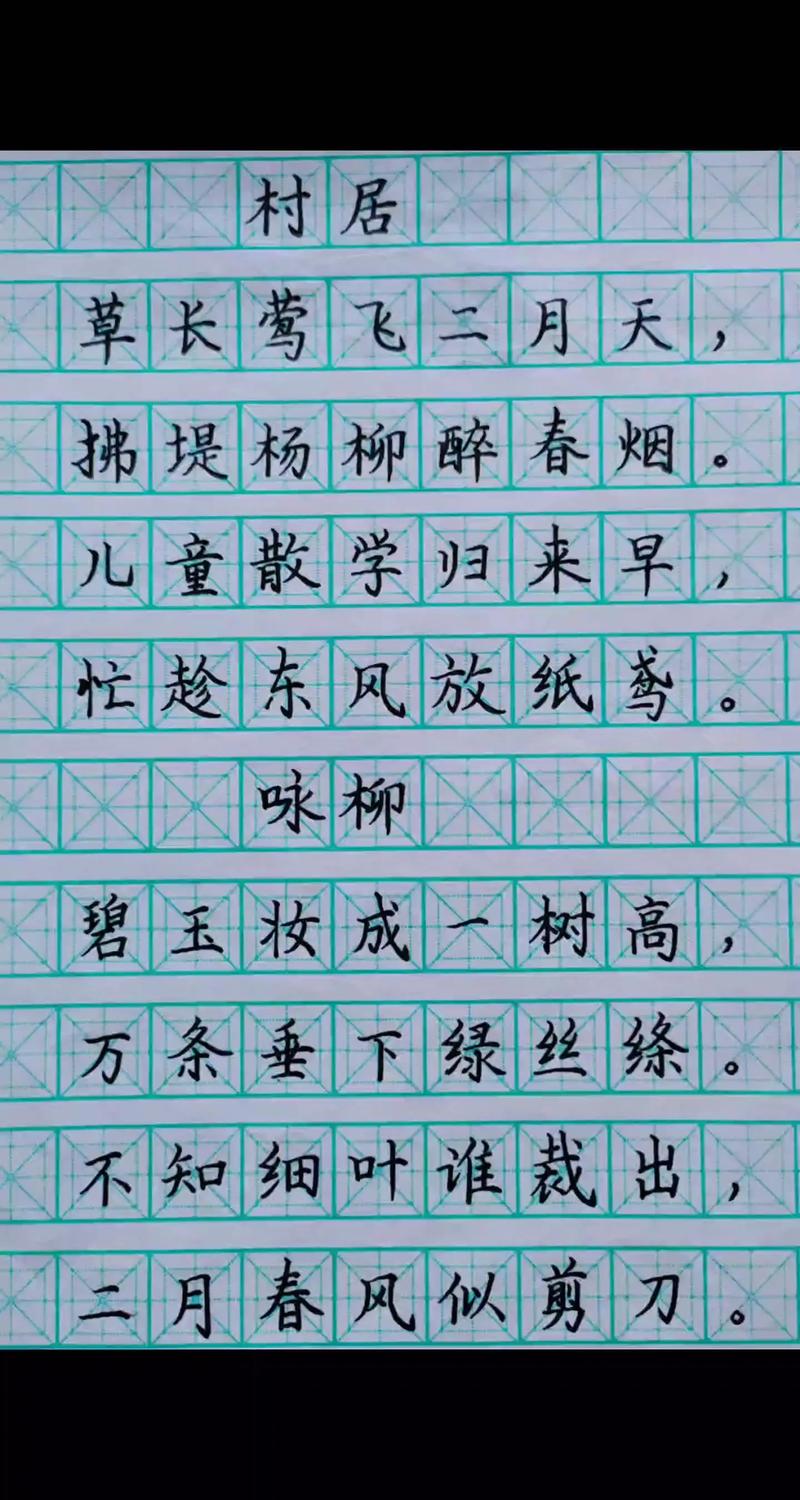 村居
草长莺飞二月天，
拂堤杨柳醉春烟。
儿童散学归来早，
忙趁东风放纸鸢。
咏柳
碧玉妆成一树高，
万条垂下绿丝绦。
不知细叶谁裁出，
二月春风似剪刀。